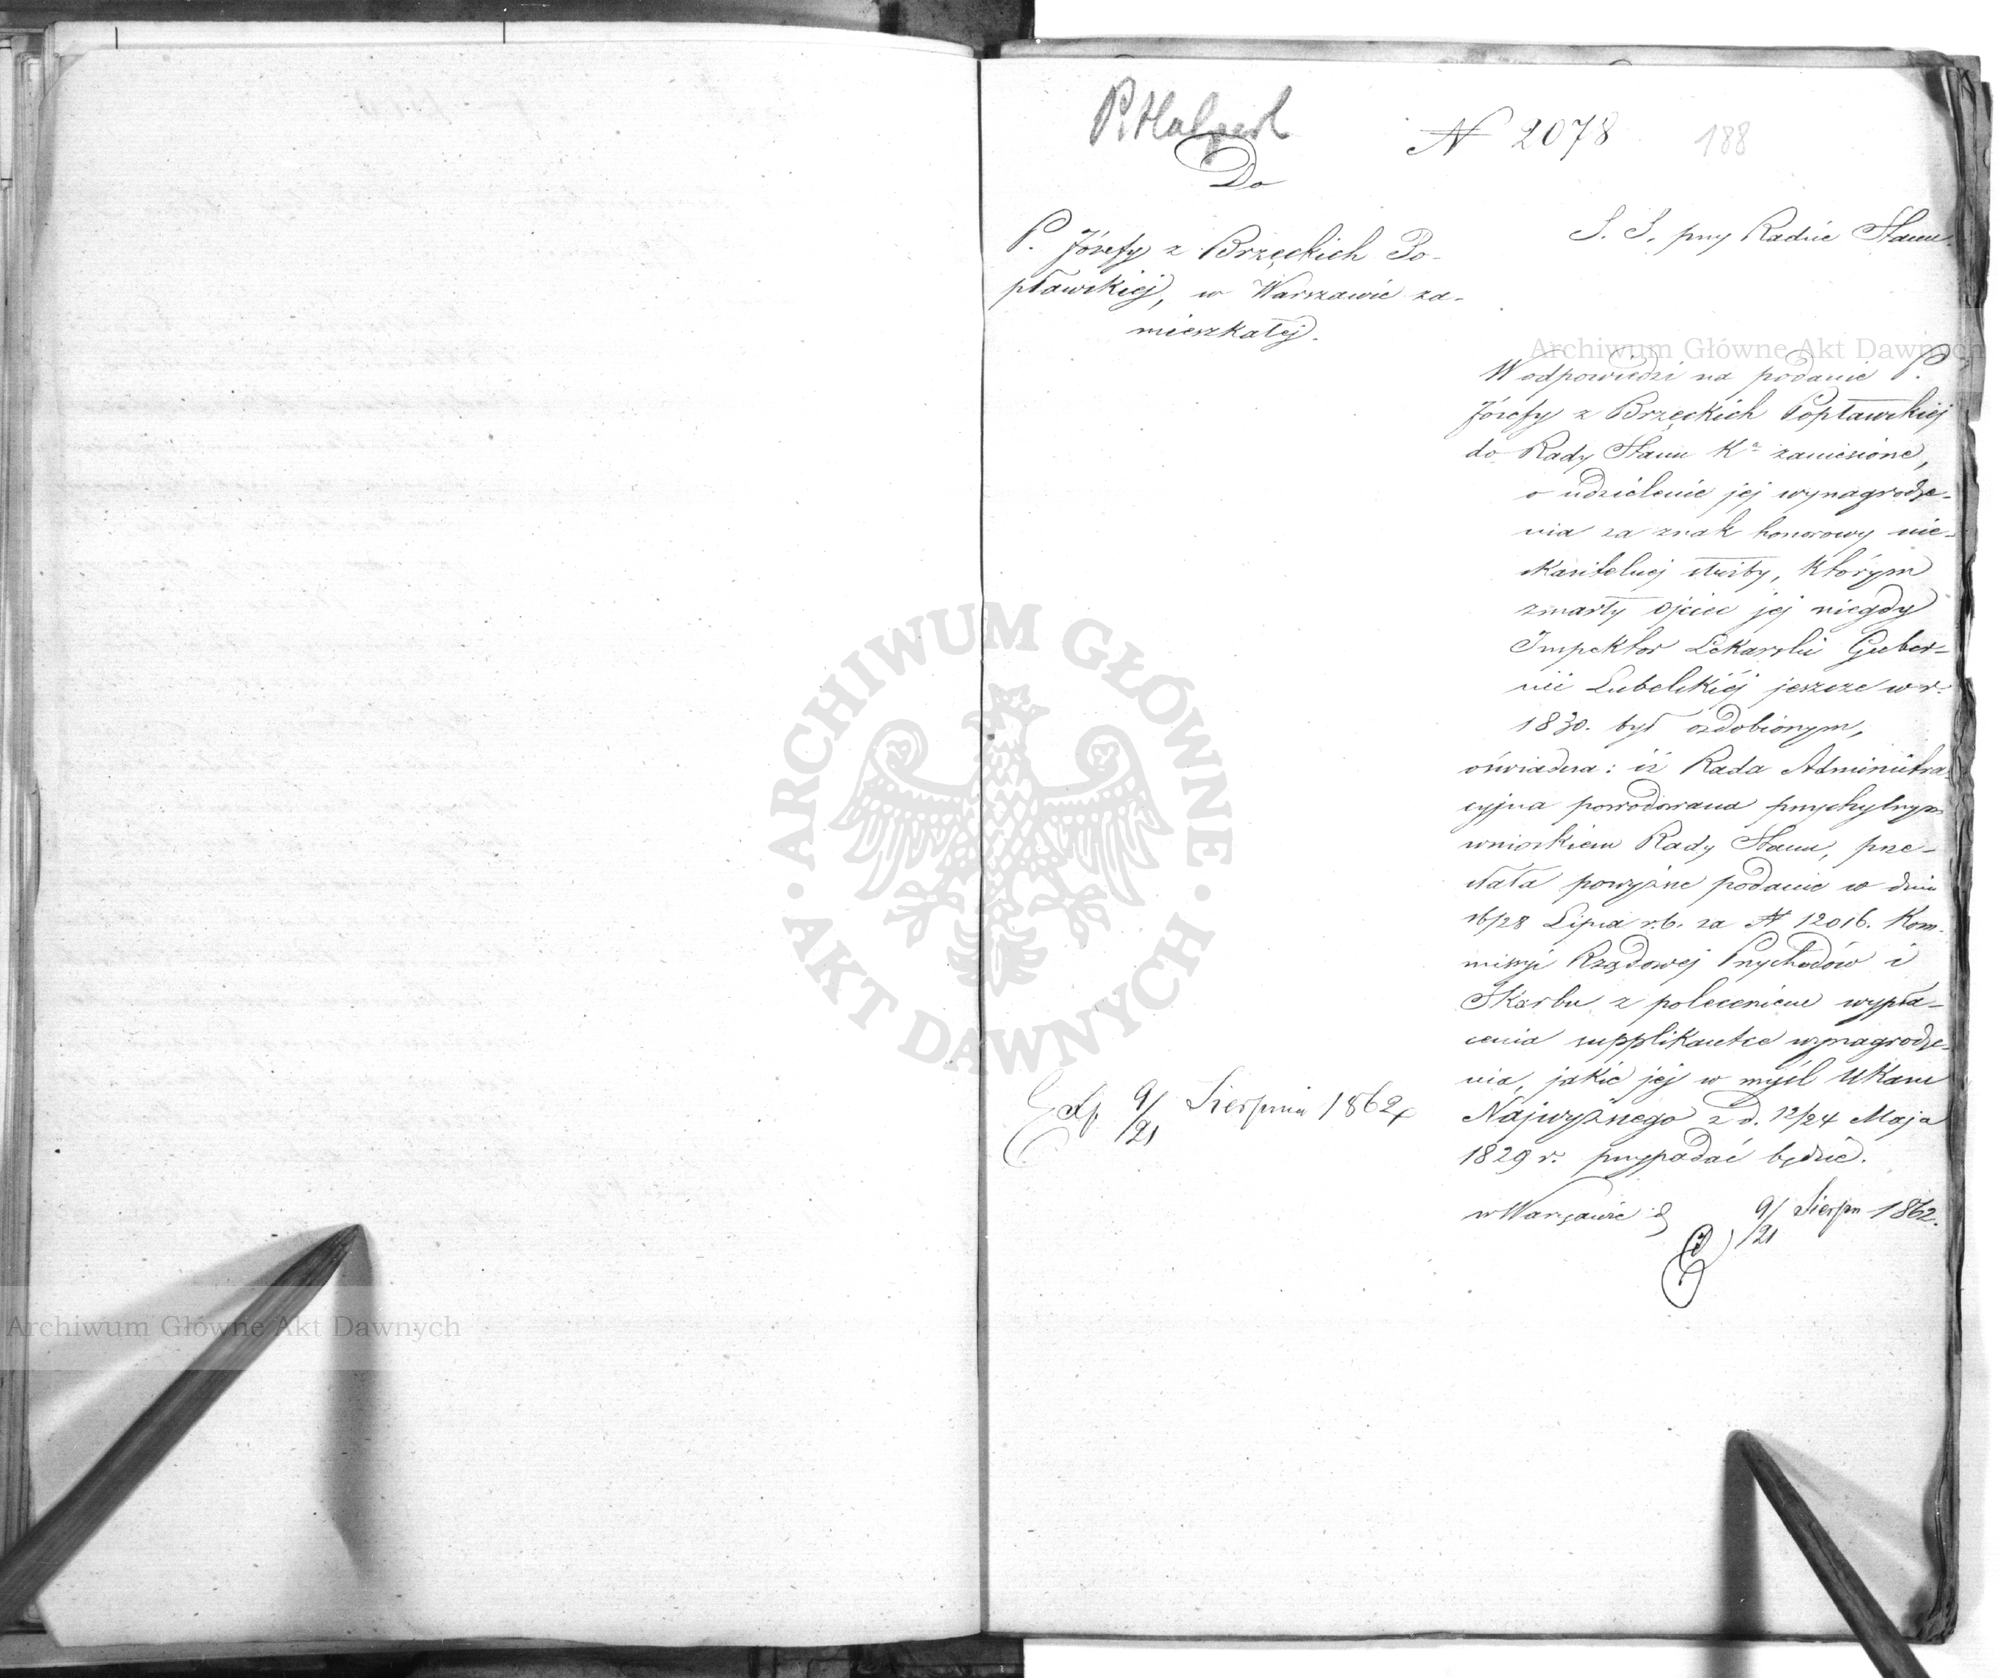 P. Halpert
N 2078
188
Do
P. Józefy z Brzęckich Po-
pławskiej, w Warszawie za-
mieszkałej.
S. S. przy Radzie Stanu.
W odpowiedzi na podanie P.
Józefy z Brzęckich Popławskiej
do Rady Stanu Kª zaniesione,
o udzielenie jej wynagrodze-
nia za znak honorowy nie-
skazitelnej służby, którym
zmarły ojciec jej niegdy
Inspektor Lekarski Guber-
nii Lubelskiéj jeszcze w r.
1830. był ozdobionym,
oświadcza: iż Rada Administra-
cyjna powodowana przychylnym
wnioskiem Rady Stanu, prze-
słała powyższe podanie w dniu
16/28 Lipca r.b. za N 12016. Kom-
missyi Rządowej Przychodów i
Skarbu z poleceniem wypła-
cenia supplikantce wynagrodze-
nia, jakie jej w myśl Ukazu
Najwyższego z d. 12/24 Maja
1829 r. przypadać będzie.
w Warszawie d 9/21 Sierpn 1862.
Exp 9/21 Sierpnia 1862
Archiwum Główne Akt Dawnych
Archiwum Główne Akt Dawnych
ARCHIWUM GŁÓWNE
AKT DAWNYCH